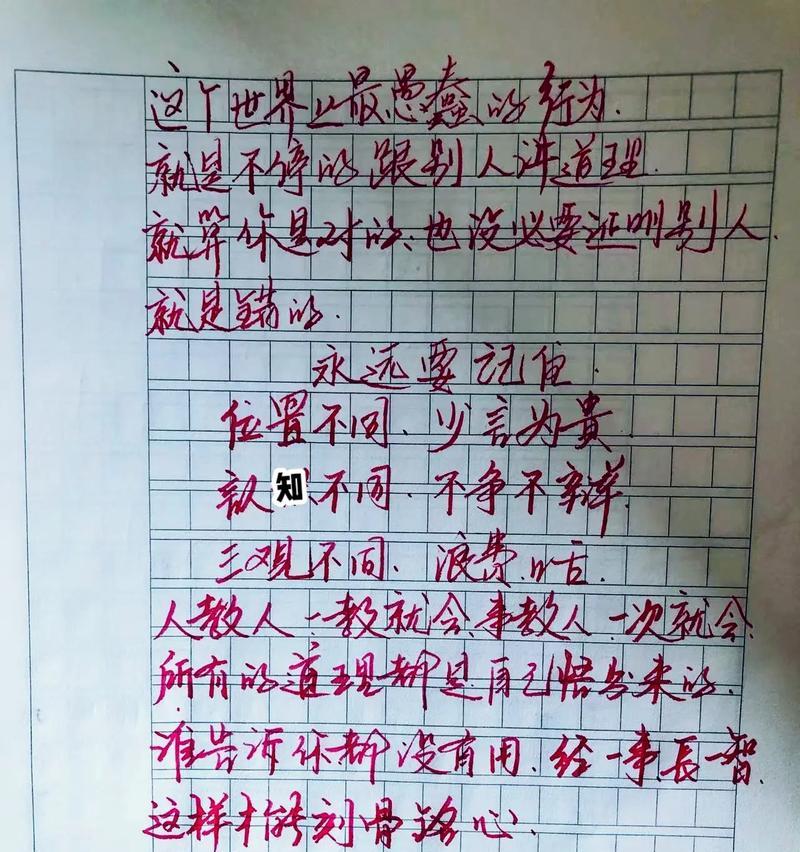 这个世界上最愚蠢的行为.
就是不停的跟别人讲道理.
就算你是对的、也没必要证明别人.
就是错的.
永远要记住.
位置不同、少言为貴.
認知不同、不争不辩.
三观不同、浪费口舌.
人教人一教就会、事教人一次就会.
所有的道理都是自己悟出来的.
谁告诉你都没有用、经一事長一智.
这样才能刻骨铭心.